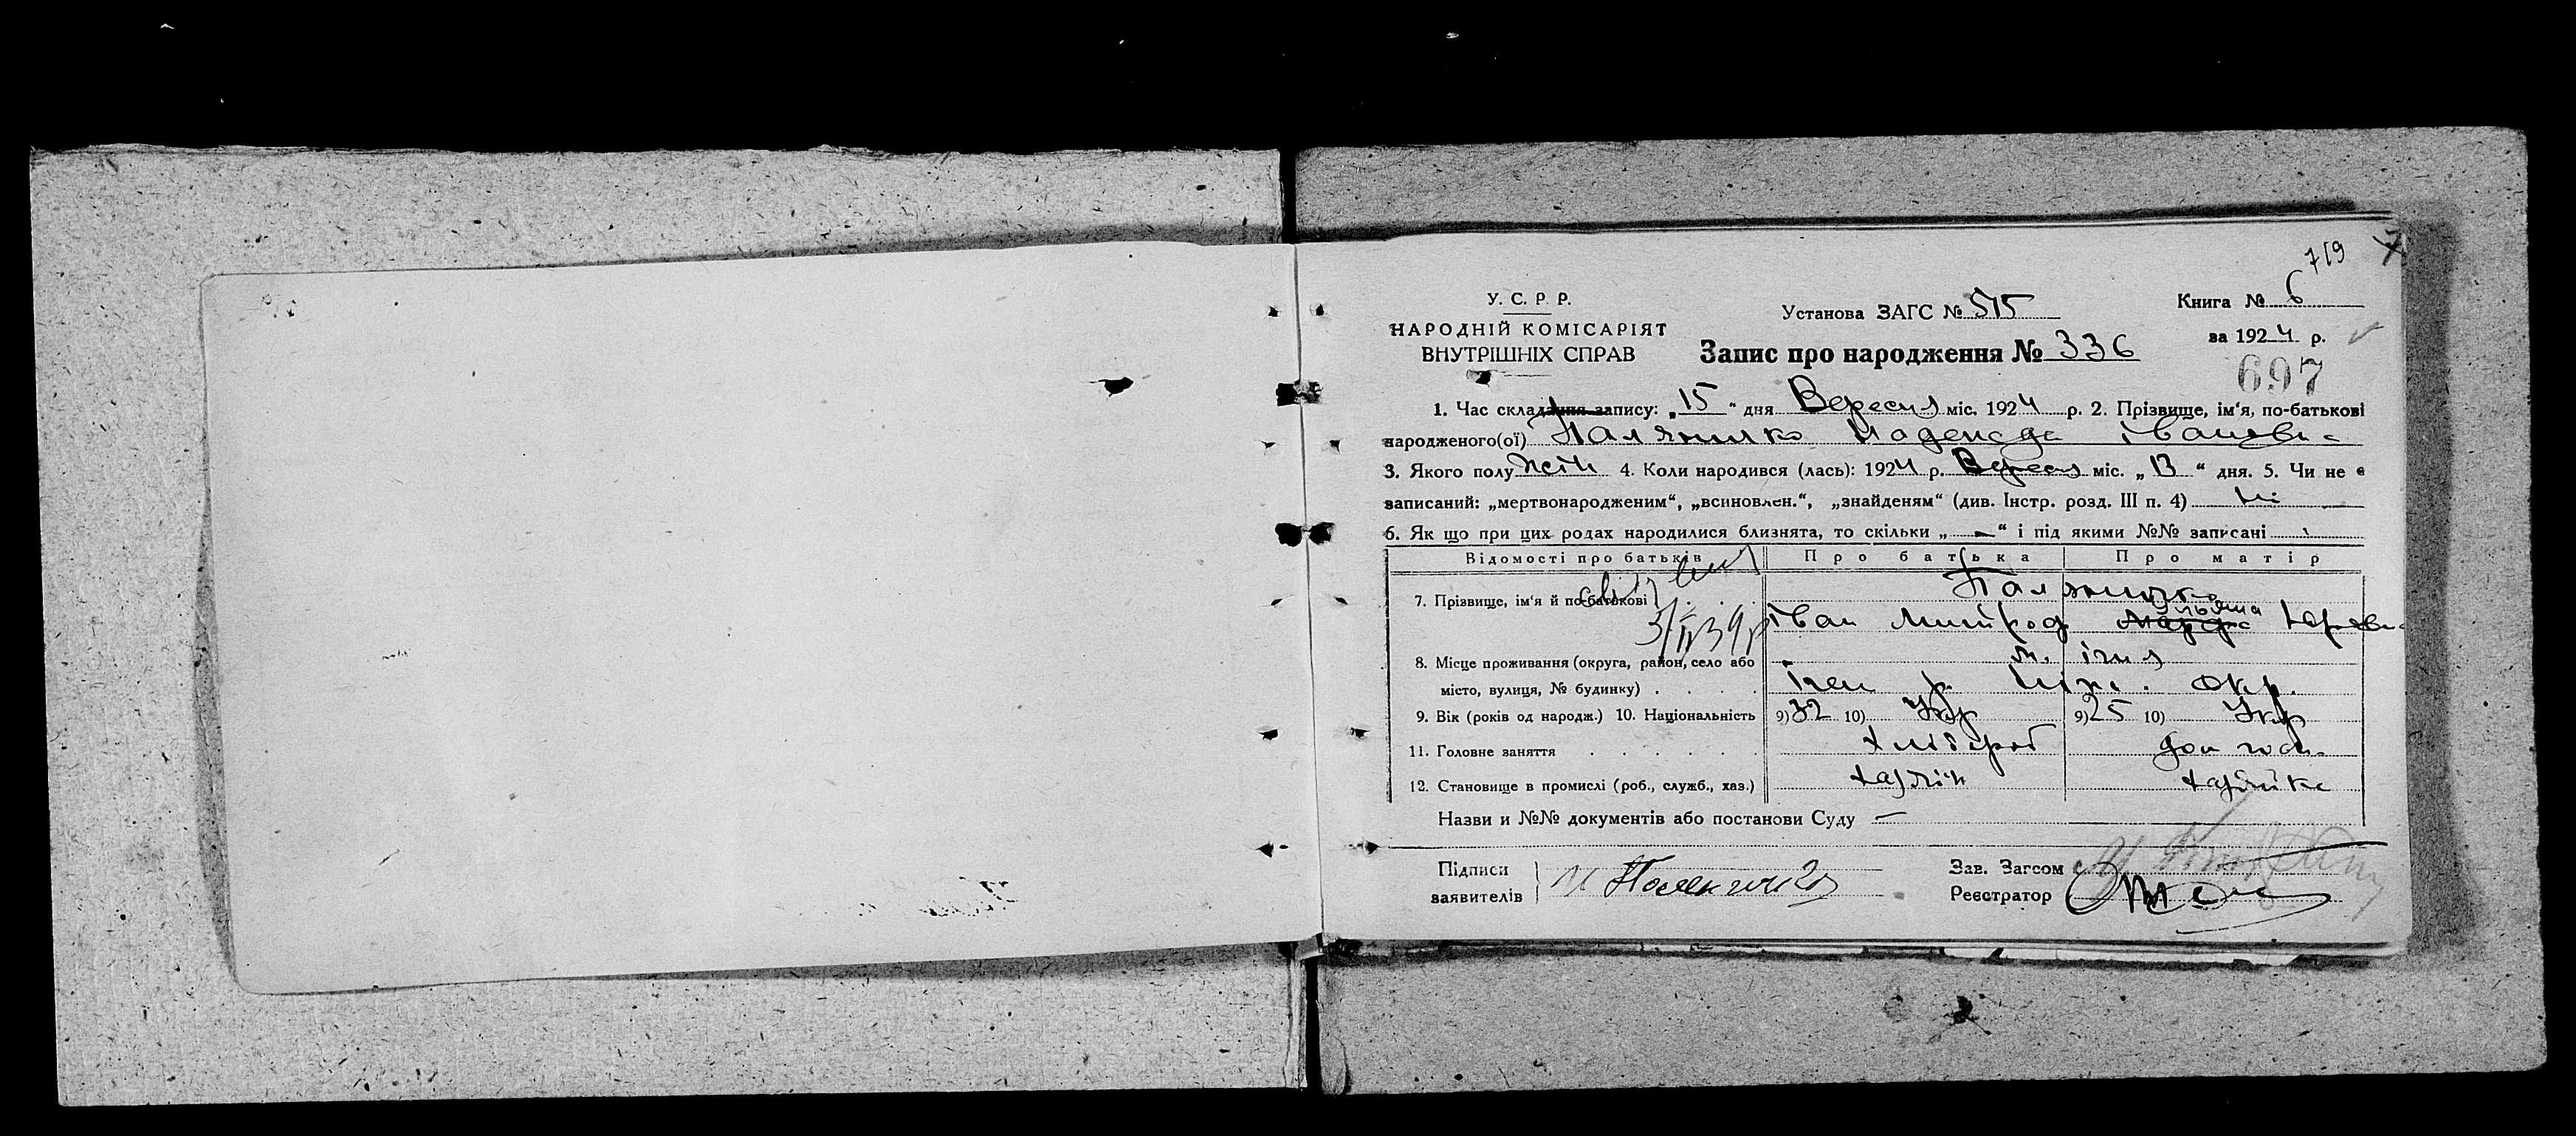 719
У. С. Р. Р.
НАРОДНІЙ КОМІСАРІЯТ
ВНУТРІШНІХ СПРАВ
Установа ЗАГС № 515
Книга № 6
за 1924 р.
Запис про народження № 336
697
1. Час складання запису: „15“ дня Вересня міс. 1924 р. 2. Прізвище, ім'я, по-батькові
народженого(ої) Надежда Іванови
3. Якого полу жін 4. Коли народився (лась): 1924 р. Вересня міс. „13“ дня. 5. Чи не є
записаний: „мертвонародженим“, „всиновлен.“, „знайденям“ (див. Інстр. розд. III п. 4) ні
6. Як що при цих родах народилися близнята, то скільки „—“ і під якими №№ записані
Відомості про батьків Про батька Про матір
7. Прізвище, ім'я й по-батькові
Іван Митроф
3/II 39р
8. Місце проживання (округа, район, село або
місто, вулиця, № будинку) р. окр.
9. Вік (років од народж.) 10. Національність 9) 32 10) Укр 9) 25 10) Укр
11. Головне заняття хлібороб дом госп
12. Становище в промислі (роб., служб., хаз.) хазяїн хазяйка
Назви и №№ документів або постанови Суду —
Підписи
заявителів
Зав. Загсом
Реєстратор